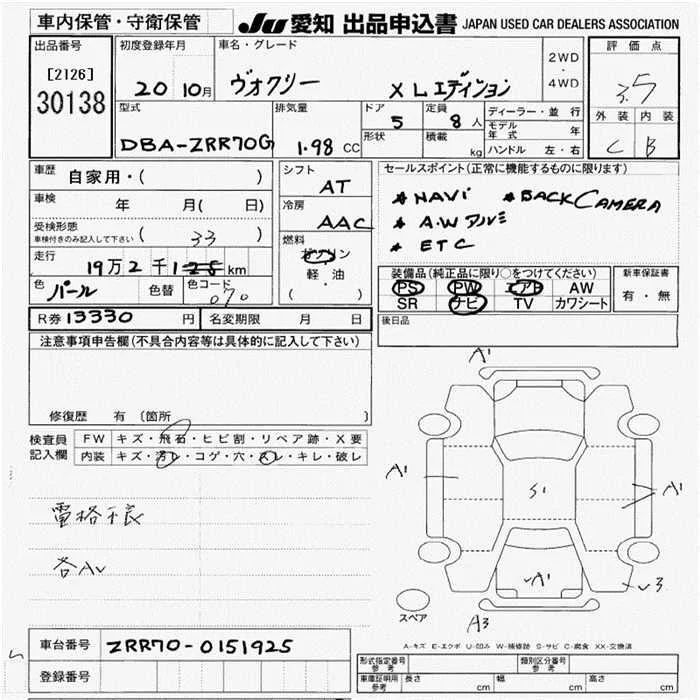 車内保管・守衛保管
JU 愛知 出品申込書 JAPAN USED CAR DEALERS ASSOCIATION
出品番号
[2126]
30138
初度登録年月
20 10月
車名・グレード
ヴォクシー XLエディション
2WD
・
4WD
評価点
3.5
外装 内装
C B
型式
DBA-ZRR70G
排気量
1.98 CC
ドア
5
定員
8 人
形状
積載
kg
ディーラー・並行
モデル年式 年
ハンドル 左・右
車歴 自家用・( )
車検 年 月( 日)
受検形態
車検付きのみ記入して下さい ( 33 )
走行
19万2千1 km
色 パール 色替 色コード 070
シフト
AT
冷房
AAC
燃料
ガソリン
軽・油
( ・ )
セールスポイント(正常に機能するものに限ります)
* NAVi * BACK CAMERA
* A.W
* ETC
装備品(純正品に限り○をつけてください)
PS PW エアB AW
SR ナビ TV カワシート
新車保証書
有・無
R券 13330 円 名変期限 月 日
後日品
注意事項申告欄(不具合内容等は具体的に記入して下さい)
修復歴 有 (箇所 )
検査員
記入欄
FW キズ・飛石・ヒビ割・リペア跡・X要
内装 キズ・汚レ・コゲ・穴・スレ・キレ・破レ
電格不良
各AV
A1
A1
S1
A1
A1
A3
スペア
A-キズ E-エクボ U-凹み W-補修跡 S-サビ C-腐食 XX-交換済
車台番号 ZRR70-0151925
登録番号
形式指定番号
参考
類別区分番号
参考
車庫証明用
参考
長さ cm 幅 cm 高さ cm